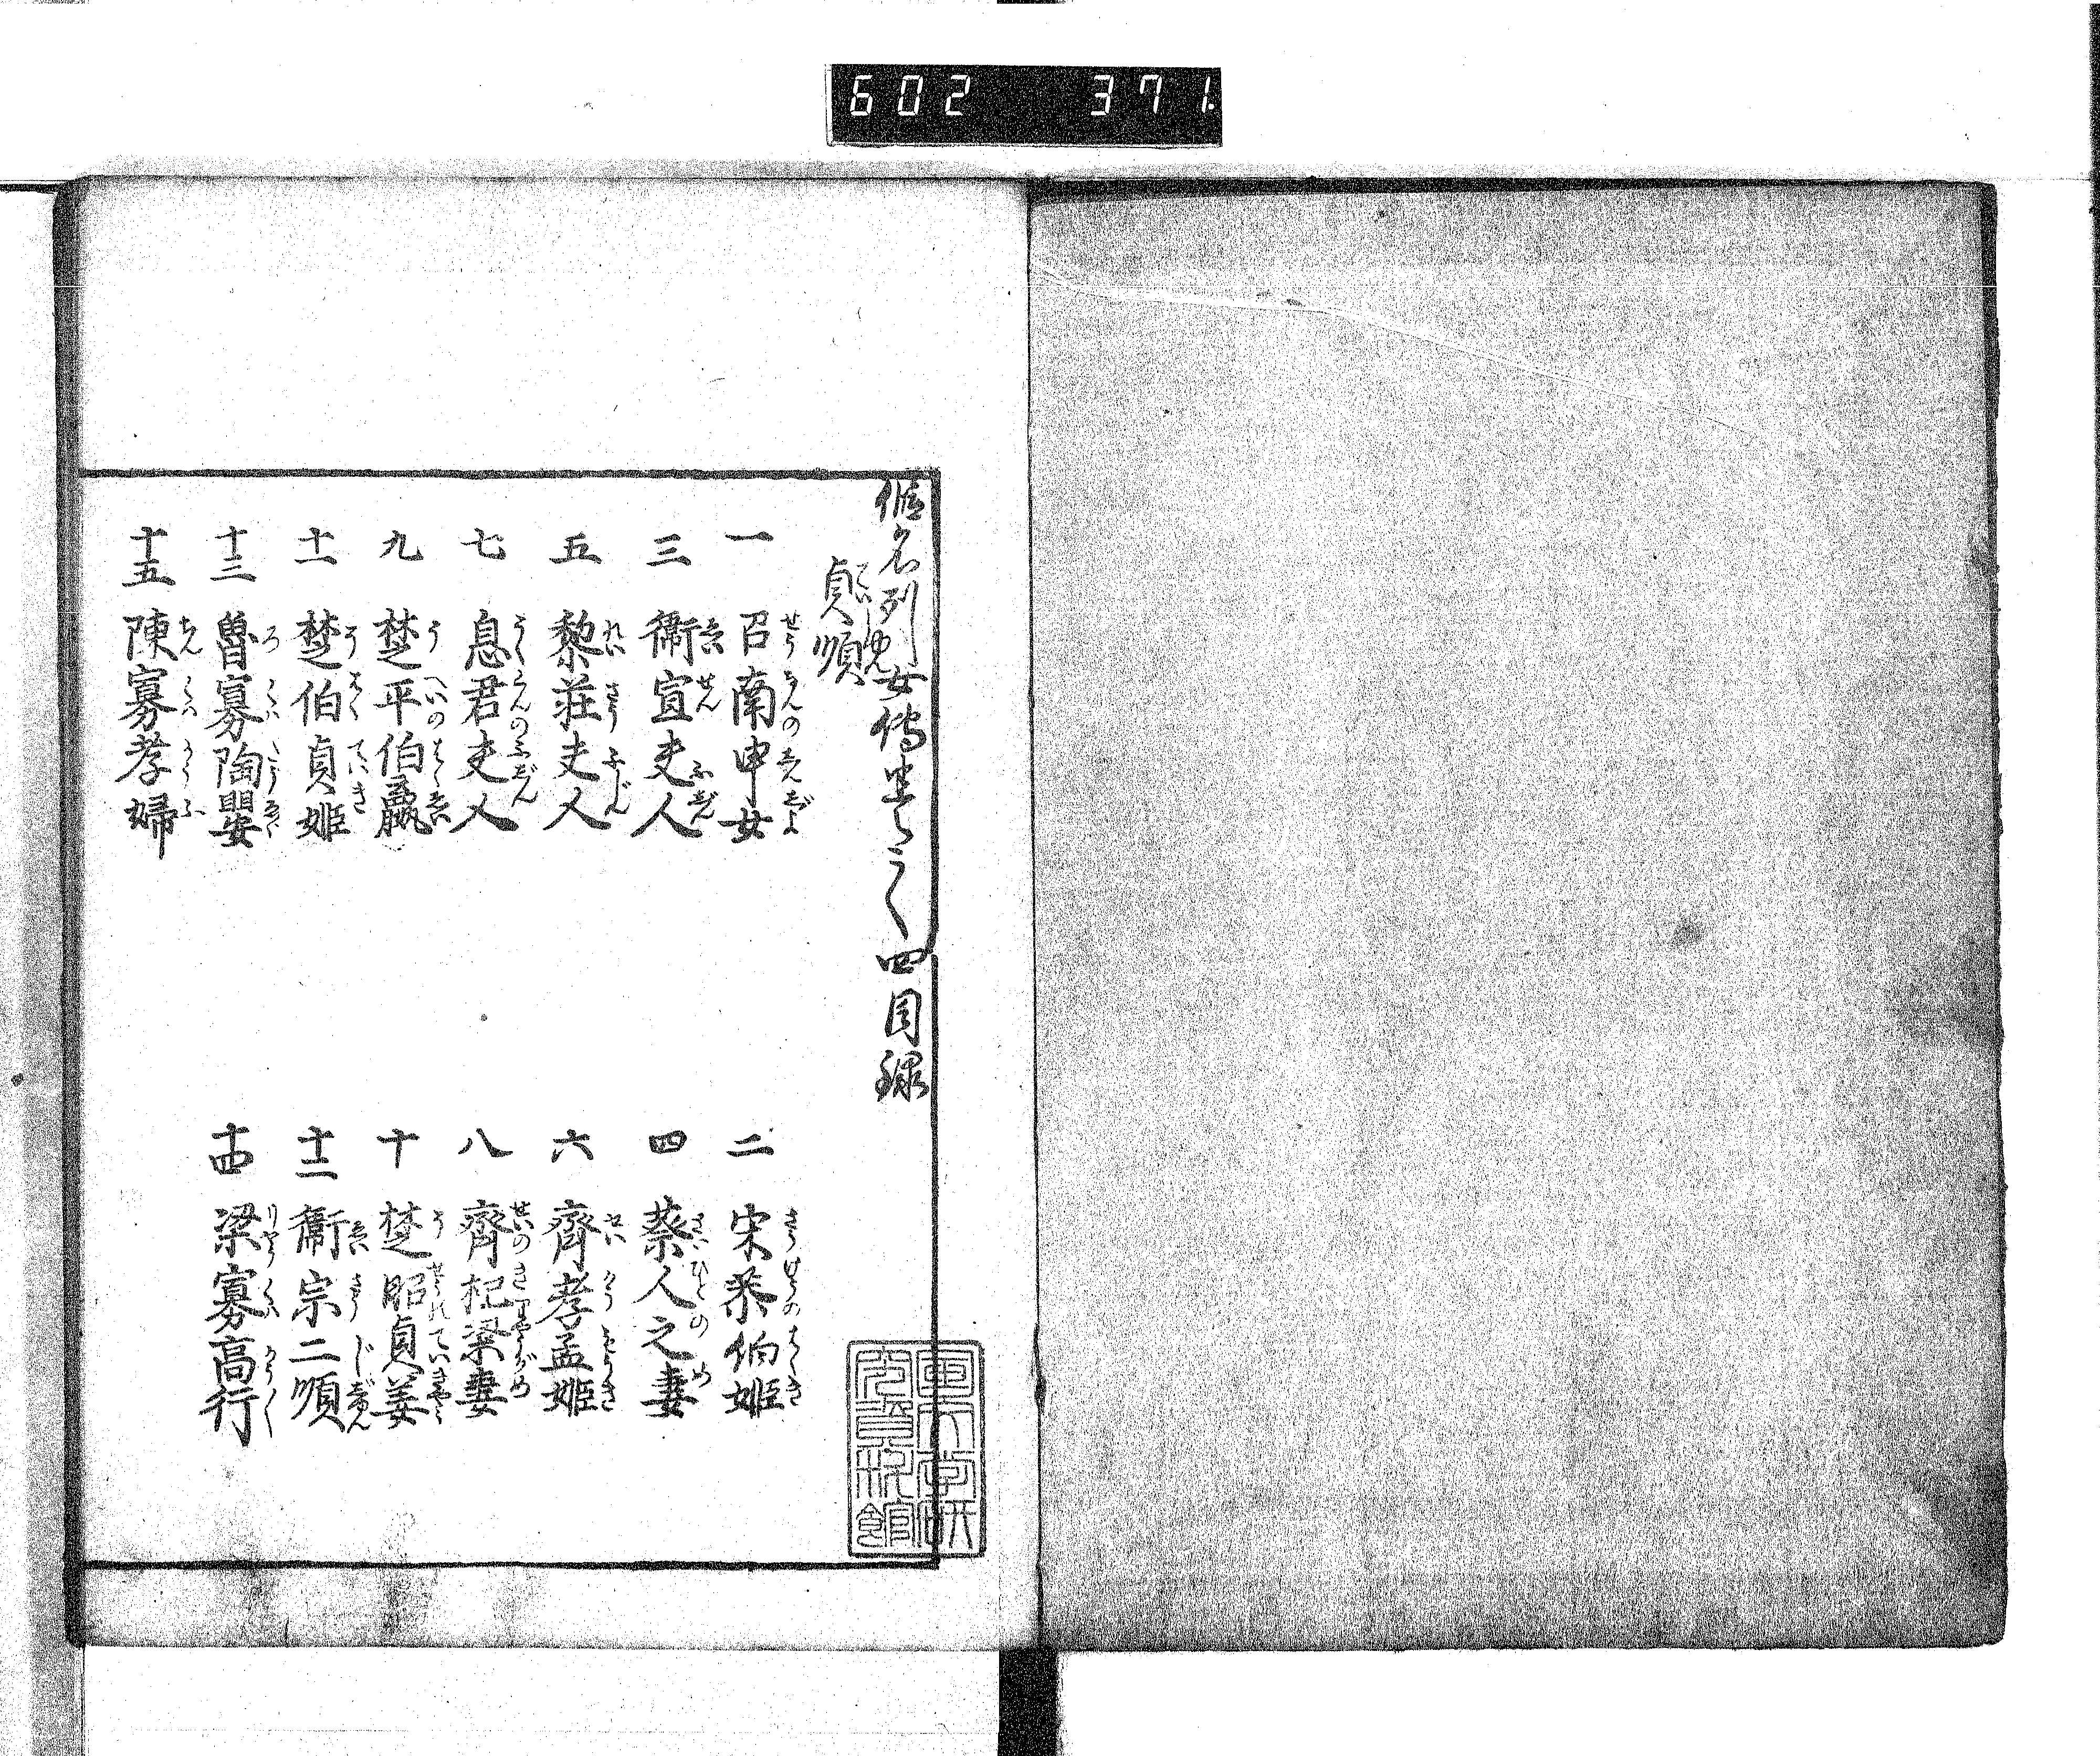 602 371
假名列女傳巻之四目録
貞順
一 召南申女
二 宋恭伯姫
三 衛宣夫人
四 蔡人之妻
五 黎荘夫人
六 齊孝孟姫
七 息君夫人
八 齊杞梁妻
九 楚平伯嬴
十 楚昭貞姜
十一 楚伯貞姫
十二 衛宗二順
十三 魯寡陶嬰
十四 梁寡高行
十五 陳寡孝婦